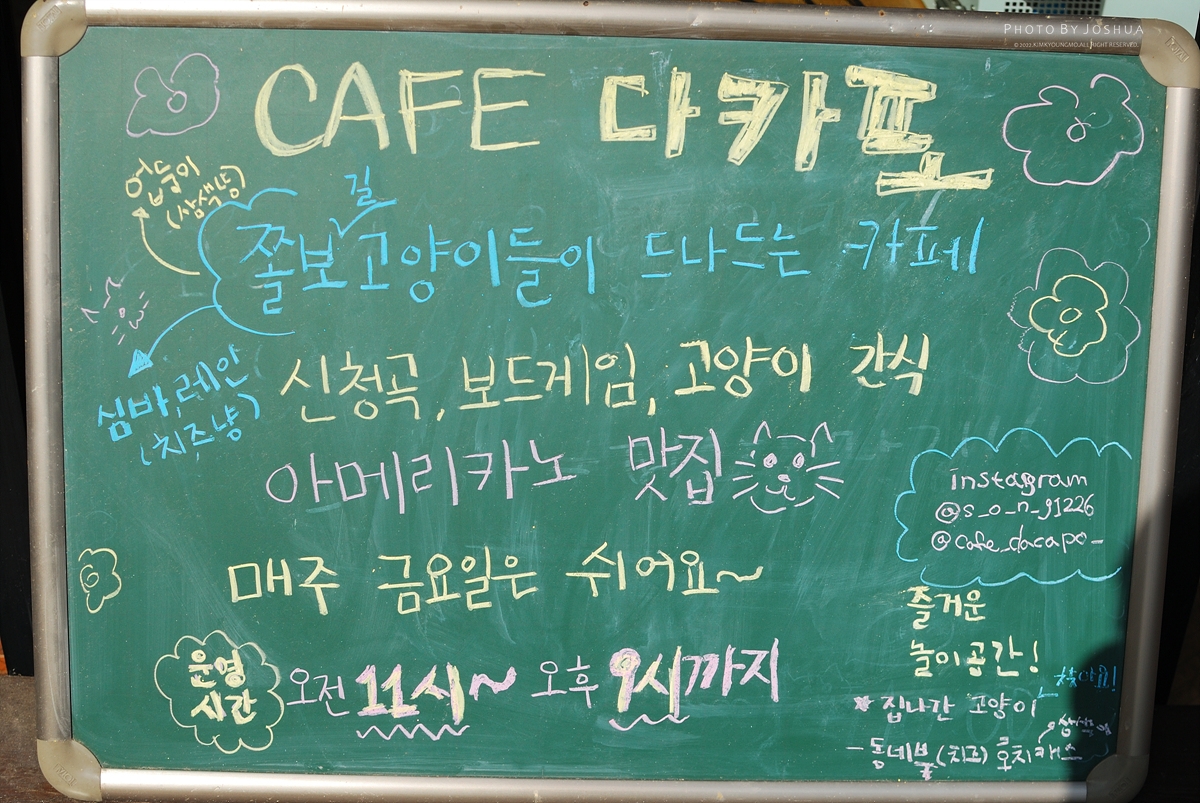 PHOTO BY JOSHUA
© 2022. KIMKYOUNGMO. ALL RIGHT RESERVED.
CAFE 다카포
(삼색냥)
길
쫄보고양이들이 드나드는 카페
심바, 레안
(치즈냥)
신청곡, 보드게임, 고양이 간식
아메리카노 맛집
instagram
@s_o_n_g1226
@cafe_dacapo_
매주 금요일은 쉬어요~
즐거운
놀이공간!
운영
시간
오전 11시~ 오후 9시까지
집나간 고양이
찾아요!